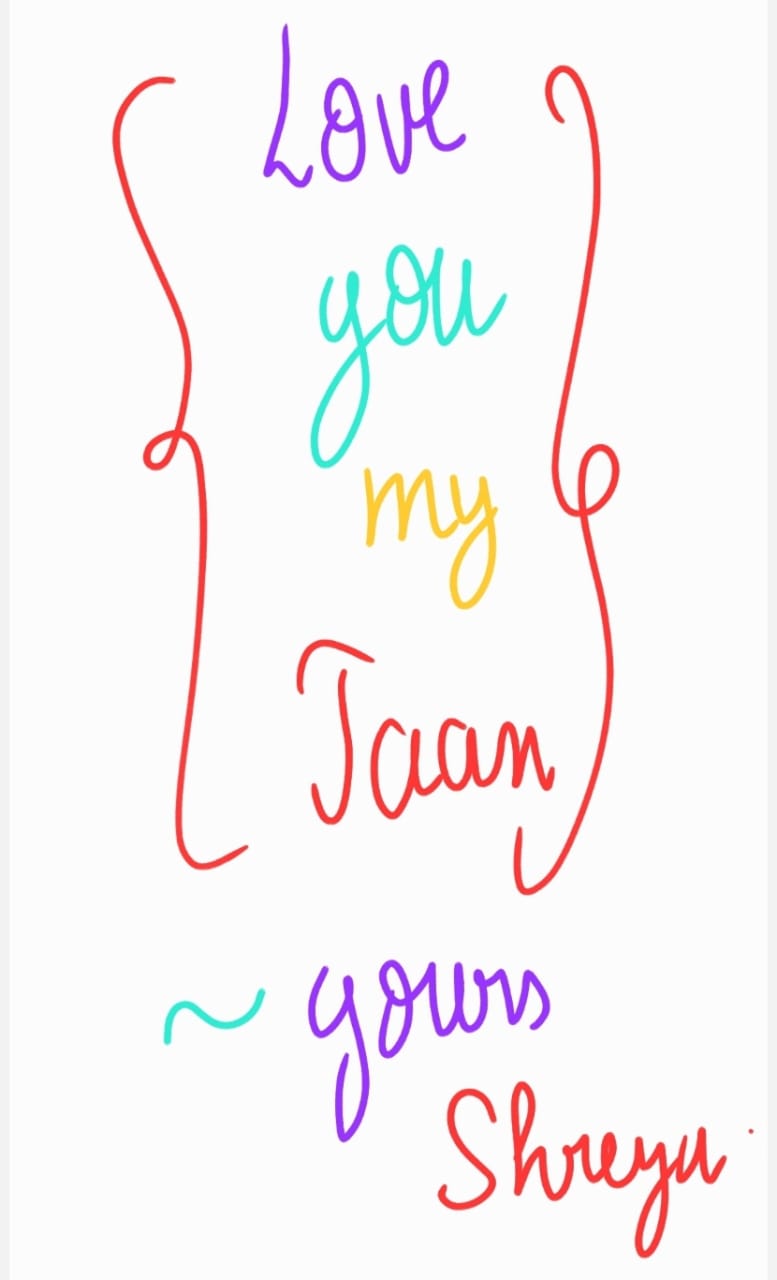 Love
you
my
Jaan
~ yours
Shreyu